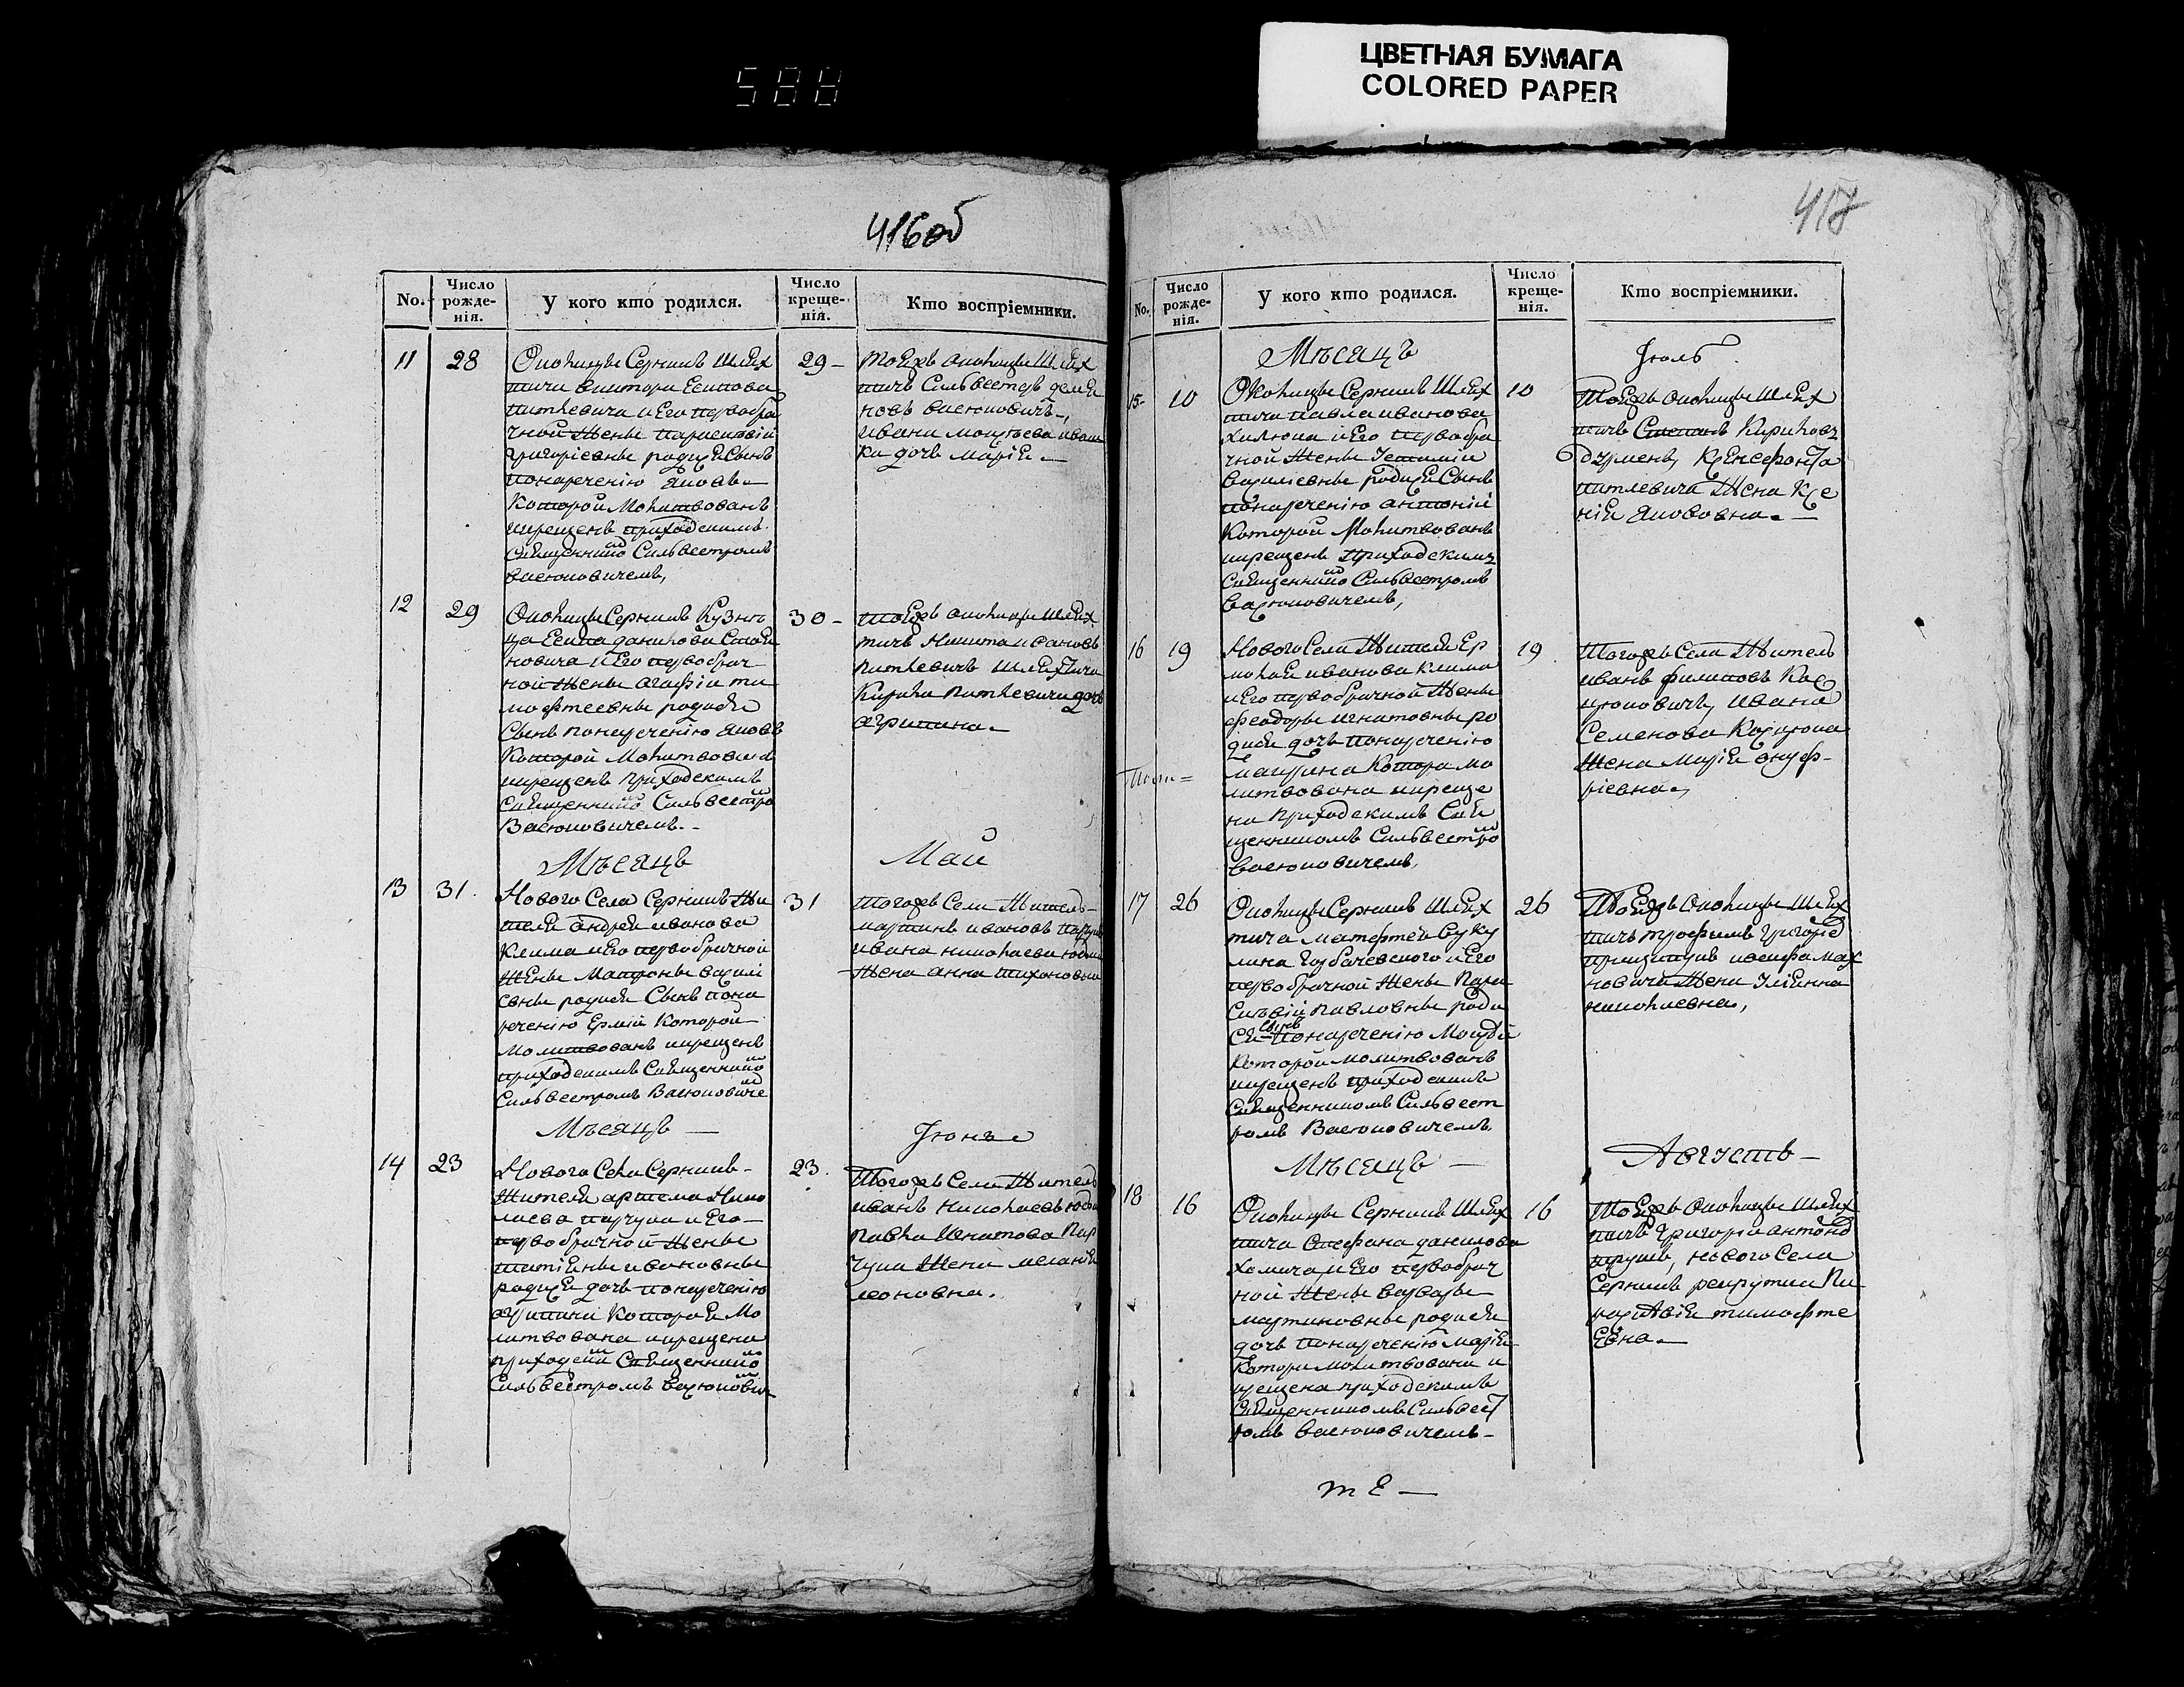 588
ЦВЕТНАЯ БУМАГА
COLORED PAPER
416об
No.
Число рожденія.
У кого кто родился.
Число крещенія.
Кто воспріемники.
11
28
29
Околицы Серникъ Шлях
тича
Питлевича и Его первобра
чной жены
григоріевны родися Сынъ
понареченію Яковъ
Которой Молитвованъ
икрещенъ приходскимъ
Священнико Сильвестромъ
Васюковичемъ,
тоеяжъ околицы Шлях
тичъ Сильвестръ
новъ Васюковичъ,
ивана
ка дочь Марія
12
29
30
Околицы Серникъ Кузне
ца Есипа данилова
новича и Его первобрач
ной жены агафіи ти
мофтеевны родися
Сынъ понареченію Яковъ
Которой Молитвованъ
икрещенъ приходскимъ
Священнико Сильвестро
Васюковичемъ
тоеяжъ околицы шлях
тичъ Никита ивановъ
питкевичъ шляхтича
Кирила питкевича дочь
агрипина
Мѣсяцъ
Май
13
31
31
Нового Села Серникъ Жи
теля андрея иванова
Клима иЕго первобрачной
Жены Матроны васили
евны родися Сынъ пона
реченію Ермій Которой
Молитвованъ икрещенъ
приходскимъ Священнико
Сильвестромъ Васюковиче
тогожъ Села Житель
мартинъ ивановъ
ивана николаева
Жена анна тихоновна
Мѣсяцъ
Іюнь
14
23
23
Нового Села Серникъ
Жителя артема Нико
лаева парчука и Его
первобрачной Жены
татіяны ивановны
родися дочь понареченію
агрипина Которая Мо
литвована икрещена
приходски Священнико
Сильвестромъ Васюкови
Тогожъ Села Житель
иванъ Николаевъ
Павла Игнатова Пар
чука Жена меланія
леоновна.
417
No.
Число рожденія.
У кого кто родился.
Число крещенія.
Кто воспріемники.
Мѣсяцъ
Іюль
15
10
10
Околицы Серникъ Шлях
тича павла иванова
и Его первобра
чной Жены
Василіевны родися Сынъ
понареченію антоній
Которой Молитвованъ
икрещенъ Приходскимъ
Священнико Сильвестромъ
Васюковичемъ,
Тоеяжъ околицы Шлях
тичъ Степанъ Кириловъ
Ксенофонта
питкевича Жена Ксе
нія Якововна.
16
19
19
Нового Села Жителя Ер
молая иванова клима
иЕго первобрачной Жены
феодоры игнатовны ро
дися дочь понареченію
Которая мо
литвована икреще
на Приходскимъ Свя
щенникомъ Сильвестро
Васюковичемъ,
Тогожъ Села Житель
иванъ филиповъ
Ивана
Семенова
Жена Марія ануф
ріевна,
17
26
26
Околицы Серникъ Шлях
тича матфтея Вуку
лина Горбачевского иЕго
первобрачной Жены Пара
Скѣвіи Павловны роди
Ся Сынъ понареченію
Которой молитвованъ
икрещенъ приходскимъ
Священникомъ Сильвест
ромъ Васюковичемъ
Тоеяжъ Околицы Шлях
тичъ трофимъ Григорі
иосифа Мах
новича Жена Уліянна
николаевна,
Мѣсяцъ
Августъ
18
16
16
Околицы Серникъ Шлях
тича Стефана данилова
Хомича, и Его первобрач
ной Жены варвары
мартиновны родися
дочь понареченію марія
Котора молитвована и
крещена приходскимъ
Священникомъ Сильвест
ромъ Васюковичемъ
Тоеяжъ Околицы Шлях
тичъ Григорій антоно
нового Села
Серникъ рекрутка Па
раскѣвія тимофте
Евна.
те